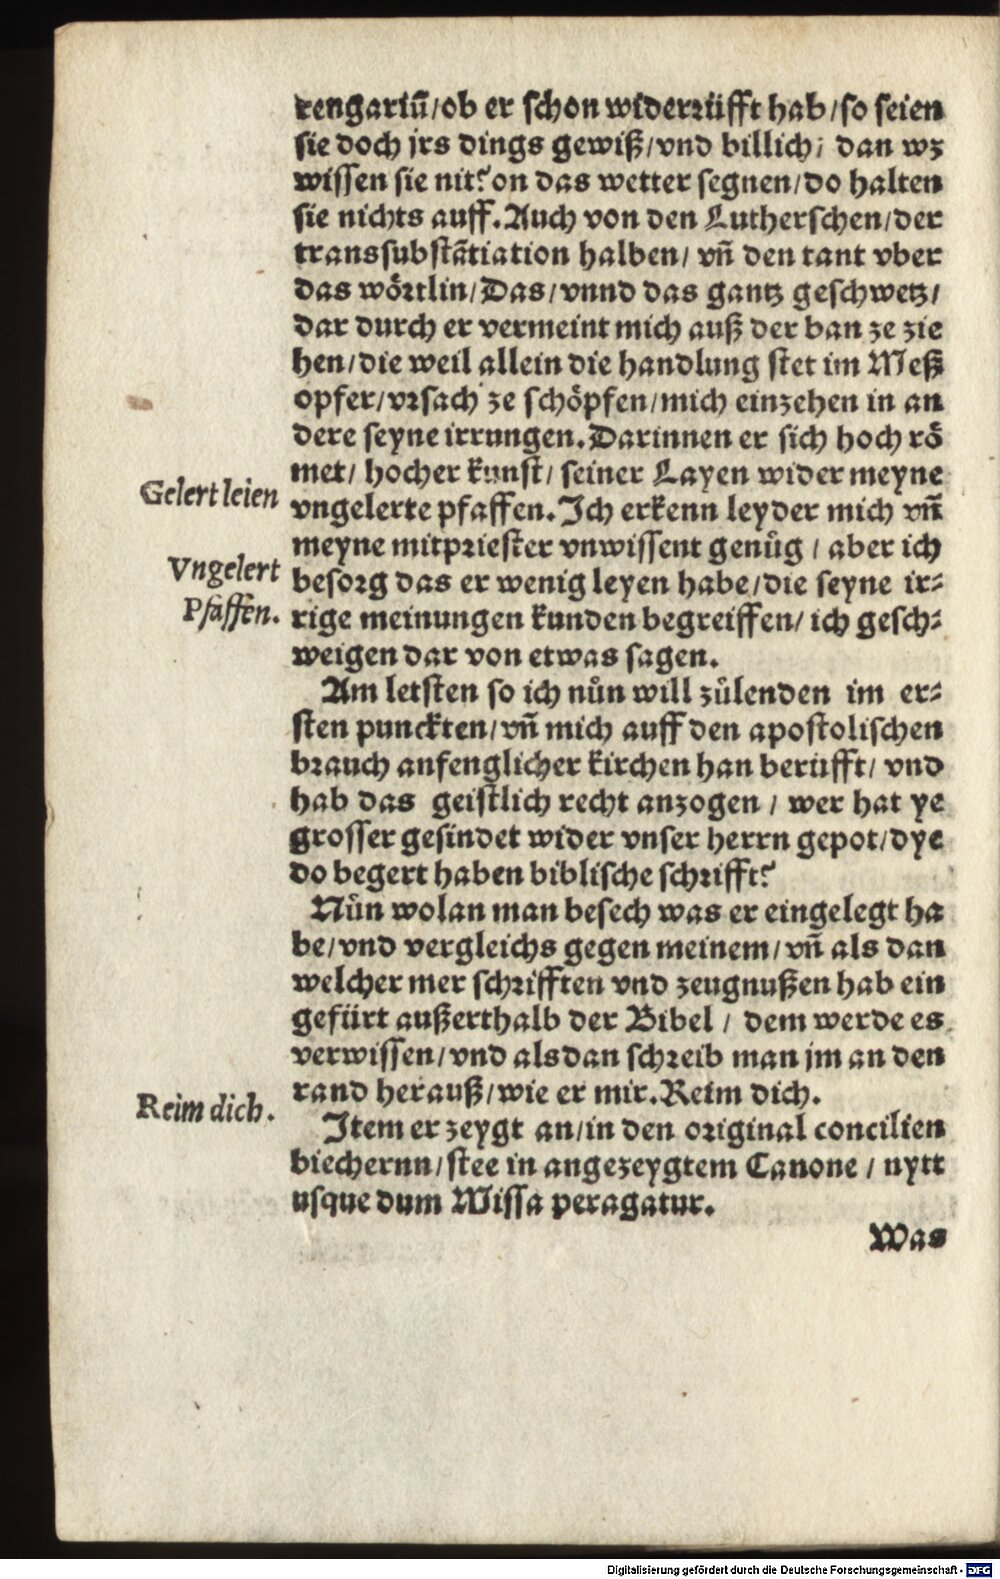 rengariũ/ob er schon widerrüfft hab/so seien
sie doch jrs dings gewiß/vnd billich; dan wz
wissen sie nit? on das wetter segnen/do halten
sie nichts auff. Auch von den Lutherschen/der
transsubstãtiation halben/ vñ den tant vber
das wörtlin/Das/vnnd das gantz geschwetz/
dar durch er vermeint mich auß der ban ze zie
hen/die weil allein die handlung stet im Meß
opfer/vrsach ze schöpfen/mich einzehen in an
dere seyne irrungen. Darinnen er sich hoch rõ
met/ hocher kunst/ seiner Layen wider meyne
Gelert leien
vngelerte pfaffen. Ich erkenn leyder mich vñ
meyne mitpriester vnwissent genůg / aber ich
Vngelert
Pfaffen.
besorg das er wenig leyen habe/die seyne ir⸗
rige meinungen kunden begreiffen/ ich gesch⸗
weigen dar von etwas sagen.
Am letsten so ich nůn will zůlenden im er⸗
sten punckten/vñ mich auff den apostolischen
brauch anfenglicher kirchen han berüfft/ vnd
hab das geistlich recht anzogen / wer hat ye
grosser gesindet wider vnser herrn gepot/dye
do begert haben biblische schrifft?
Nůn wolan man besech was er eingelegt ha
be/vnd vergleichs gegen meinem/vñ als dan
welcher mer schrifften vnd zeugnußen hab ein
gefürt außerthalb der Bibel / dem werde es
verwissen/vnd alsdan schreib man jm an den
rand herauß/wie er mir. Reim dich.
Reim dich.
Item er zeygt an/in den original concilien
biechernn/stee in angezeygtem Canone / nytt
usque dum Missa peragatur.
Was
Digitalisierung gefördert durch die Deutsche Forschungsgemeinschaft - DFG